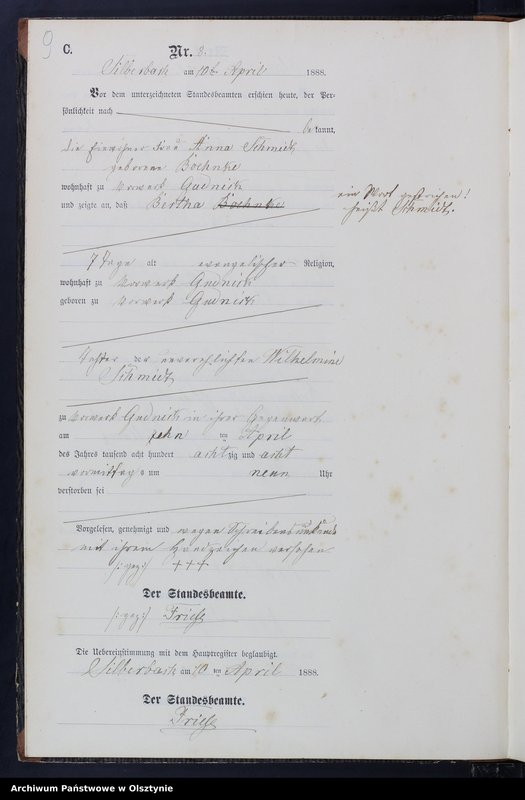 9
C.
Nr. 8.
Silberbach am 10t April 1888.
Vor dem unterzeichneten Standesbeamten erschien heute, der Per-
sönlichkeit nach
be kannt,
die Einwohner Frau Anna Schmidt
geborene Boehnke
wohnhaft zu Vorwerk Gudnick
und zeigte an, daß Bertha Boehnke
ein Wort gestrichen!
heißt Schmidt.
7 Tage alt evangelischer Religion,
wohnhaft zu Vorwerk Gudnick
geboren zu Vorwerk Gudnick
Tochter der unverehelichten Wilhelmine
Schmidt
zu Vorwerk Gudnick in ihrer Gegenwart
am zehn ten April
des Jahres tausend acht hundert achtzig und acht
vormittags um neun Uhr
verstorben sei
Vorgelesen, genehmigt und wegen Schreibensunkunde
mit ihrem Handzeichen versehen
/:gez:/ +++
Der Standesbeamte.
/:gez:/ Friese
Die Uebereinstimmung mit dem Hauptregister beglaubigt.
Silberbach am 10 ten April 1888.
Der Standesbeamte.
Friese
Archiwum Państwowe w Olsztynie